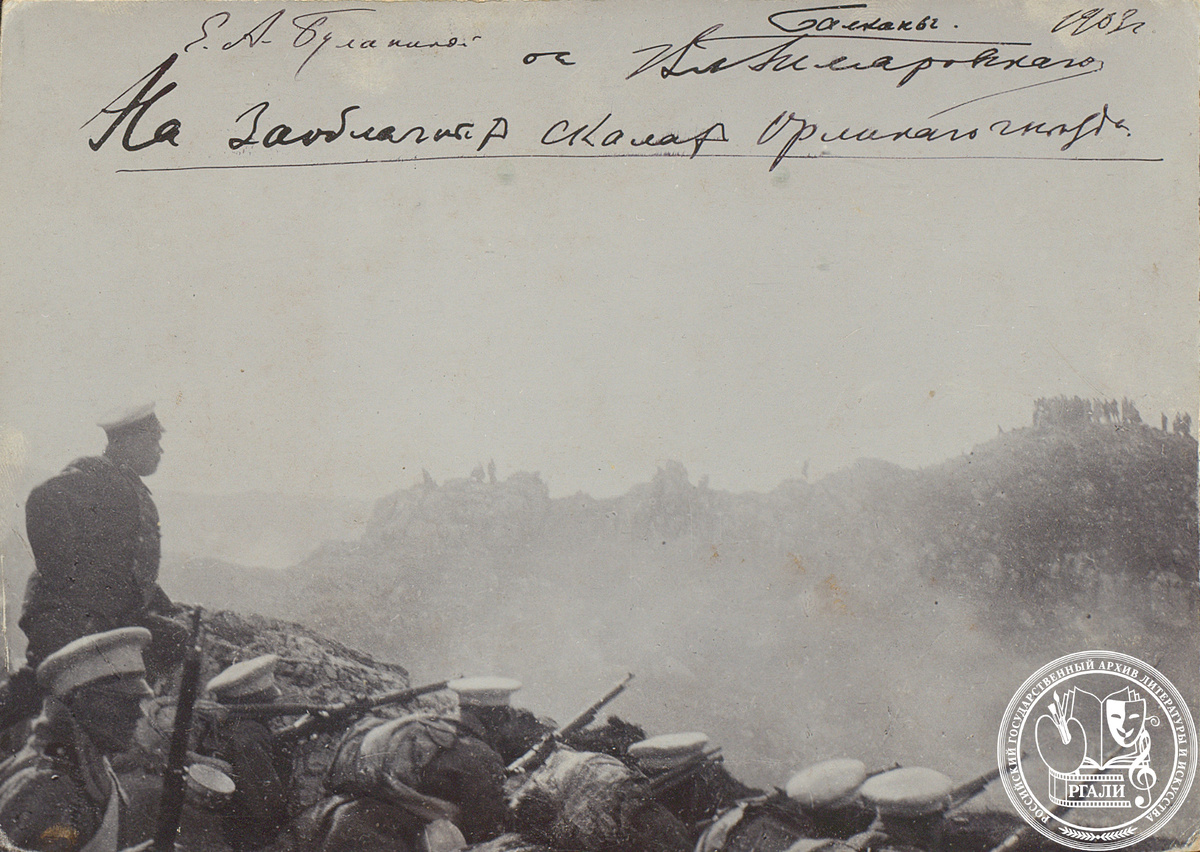 Е. А. Буланиной
Балканы. 1903г.
от Вл Гиляровскаго
На Заоблачных скалах Орлинаго гнезда.
РОССИЙСКИЙ ГОСУДАРСТВЕННЫЙ АРХИВ ЛИТЕРАТУРЫ И ИСКУССТВА
РГАЛИ